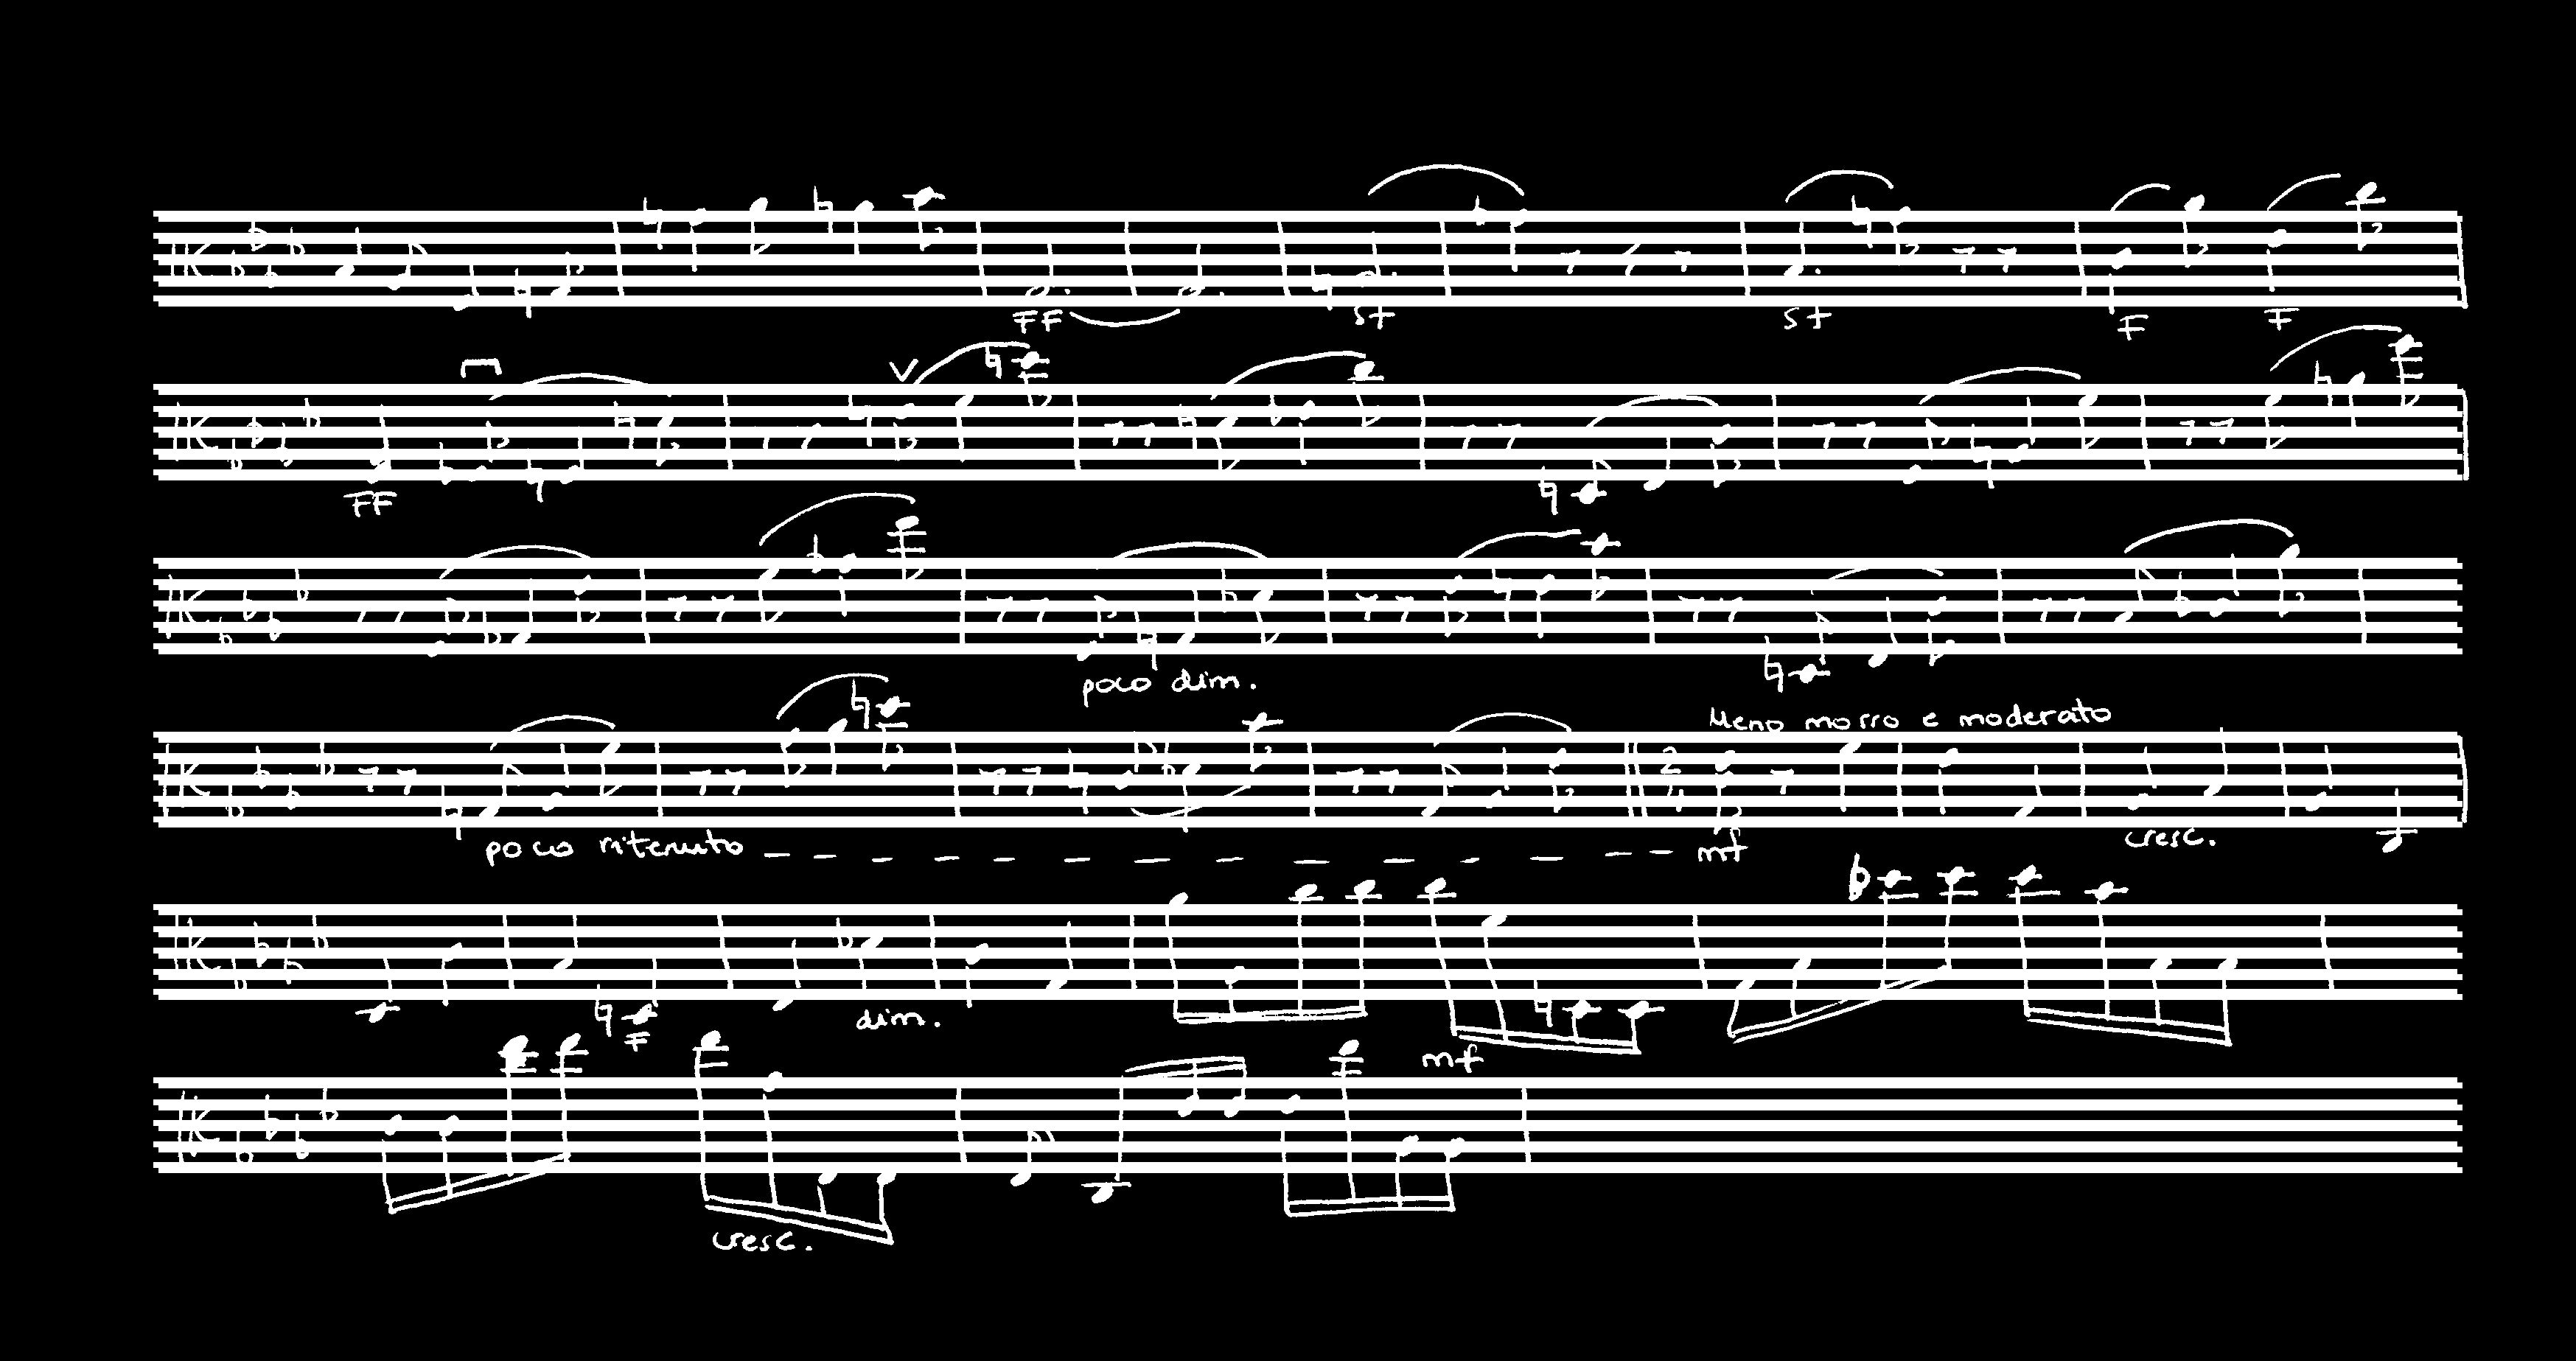 FF sf sf F F
FF
poco dim.
Meno mosso e moderato
poco ritenuto mf cresc.
F dim.
mf
cresc.